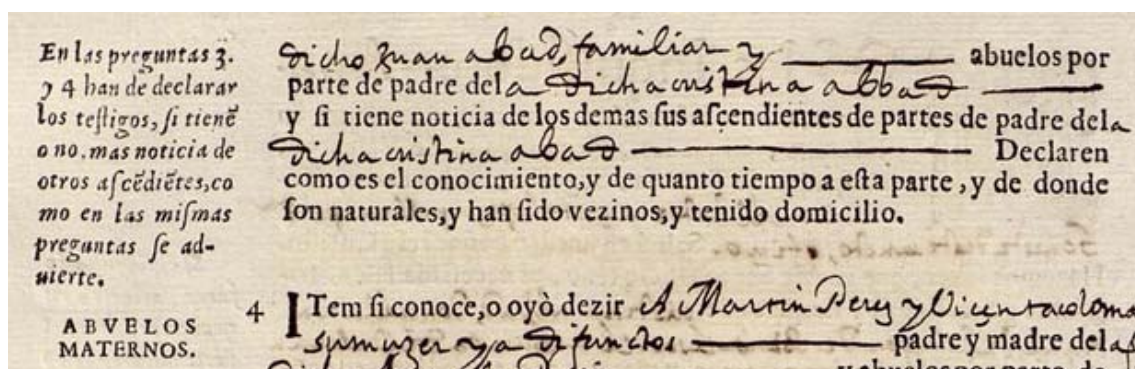 En las preguntas 3.
y 4 han de declarar
los teſtigos, ſi tienẽ
o no, mas noticia de
otros aſcẽdiẽtes, co
mo en las miſmas
preguntas ſe ad-
uierte.
dicho Juan abad, familiar y abuelos por
parte de padre dela dicha cristina abbad
y ſi tiene noticia de los demas ſus aſcendientes de partes de padre dela
dicha cristina abad Declaren
como es el conocimiento, y de quanto tiempo a eſta parte, y de donde
ſon naturales, y han ſido vezinos, y tenido domicilio.
ABVELOS
MATERNOS.
4 ITem ſi conoce, o oyò dezir A Martin Perez y Vicenta coloma
su muger ya difunctos padre y madre dela
y abuelos por parte de